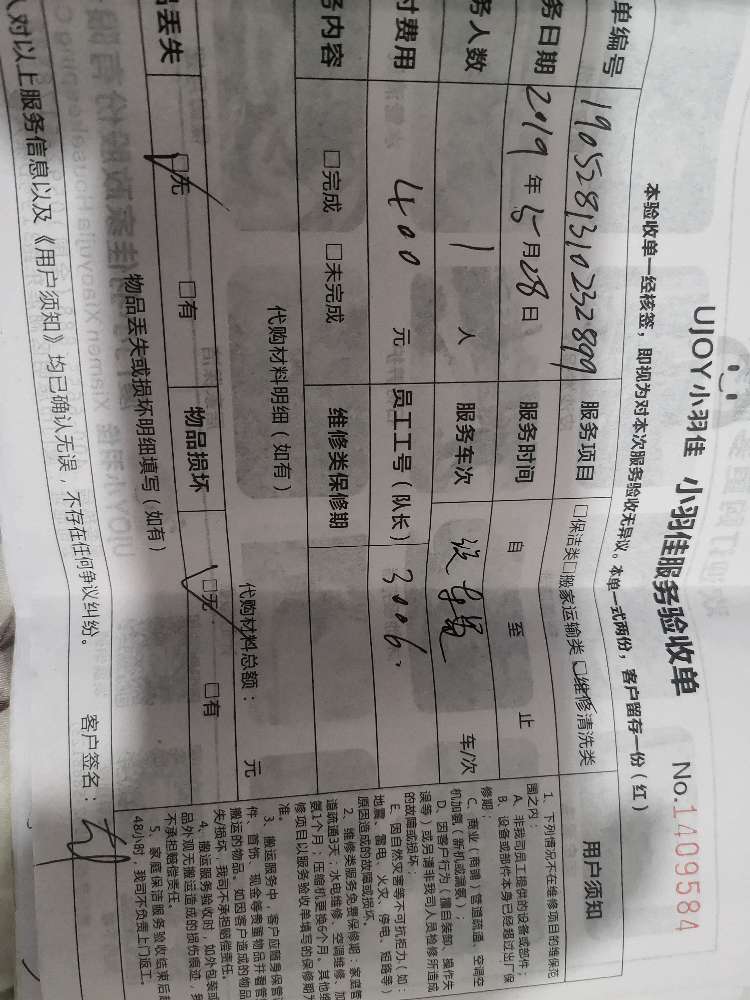 UJOY小羽佳 小羽佳服务验收单 No.1409584
本验收单一经核签，即视为对本次服务验收无异议。本单一式两份，客户留存一份（红）
单编号 1905281310232899 服务项目 □保洁类□搬家运输类□维修清洗类
务日期 2019年5月28日 服务时间 自 至 止
务人数 1人 服务车次 车/次
付费用 400元 员工工号（队长） 3006.
务内容 □完成 □未完成 维修类保修期
代购材料明细（如有） 代购材料总额： 元
品丢失 □无 □有 物品损坏 □无 □有
物品丢失或损坏明细填写（如有）
人对以上服务信息以及《用户须知》均已确认无误，不存在任何争议纠纷。 客户签名：
用户须知
1、下列情况不在维修项目的维保范
围之内：
A、非我司员工提供的设备或部件；
B、设备或部件本身已经超过出厂保
修期；
C、商业（商铺）管道疏通、空调空
机加氨（新机或漏氨）；
D、因客户行为（擅自装卸、操作失
误等）或另请非我司人员检修所造成
的故障或损坏；
E、因自然灾害等不可抗拒力（如：
地震、雷电、火灾、停电、短路等）
原因造成的故障或损坏。
2、维修类服务免费保修期：家庭管
道疏通3天；水电维修、空调维修、加
氨1个月；压缩机更换6个月。其他维
修项目以服务验收单填写的保修期为
准。
3、搬运服务中，客户应随身保管
件、首饰、现金等贵重物品并看管
搬运的物品。如因客户造成的物品
失/损坏，我司不承担赔偿责任。
4、搬运服务验收时，如外包装或
品外观无搬运造成的损伤痕迹，我
不承担赔偿责任。
5、家庭保洁服务验收结束后超
48小时，我司不负责上门返工。